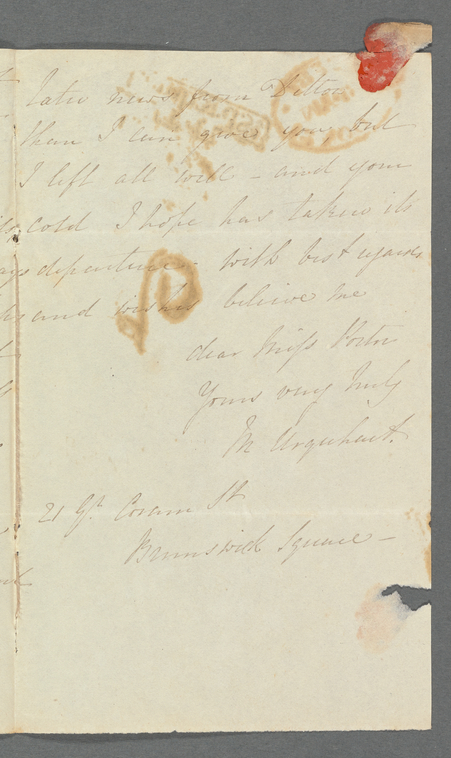 later news from Ditton
than I can give you, but
I left all well – and your
cold I hope has taken its
departure – with best regards
and wishes believe me
dear Miſs Porter
Yours very truly
M Urquhart.
21 Gt. Coram St
Brunswick Square –